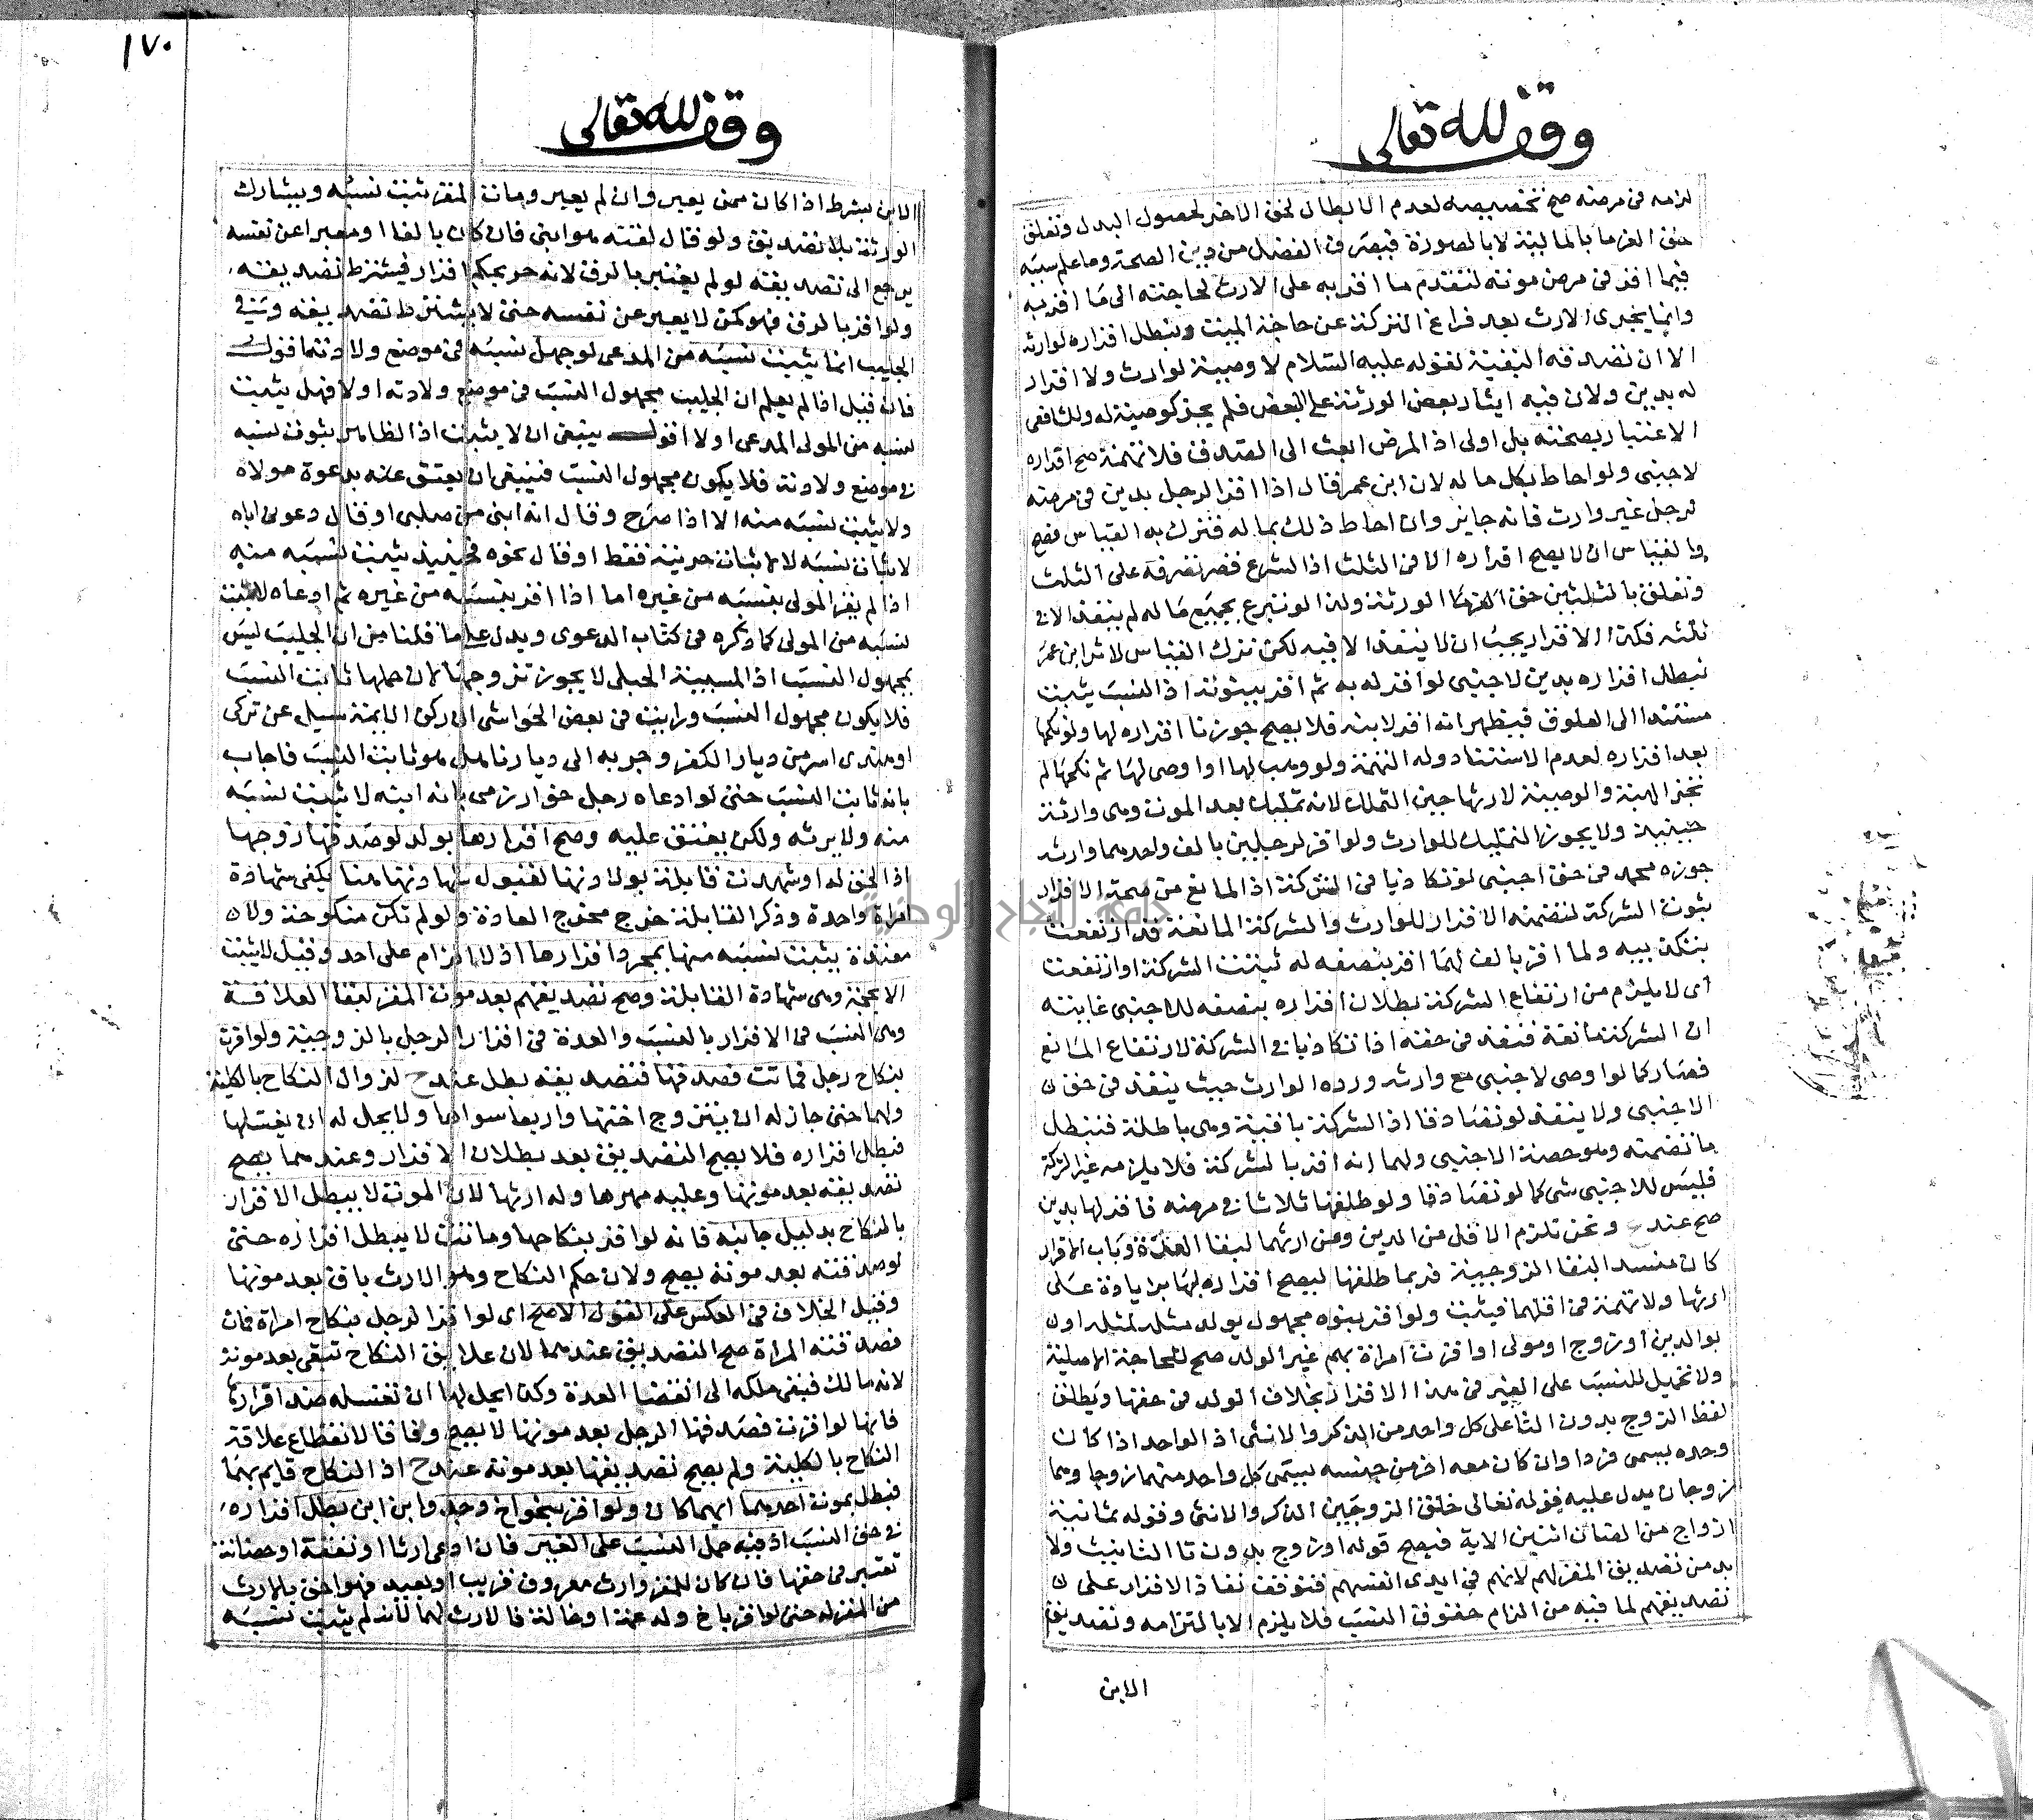 وقف لله تعالى
لزامه في مرضه صح تخصيصه لعدم الابطال لحق الاخر لحصول البدل وتعلق
حق الغرما بالمالية لا بالصورة فيصرف الفضل من دين الصحة وما علم سببه
فيما اقر في مرض موته لتقدم ما اقر به على الارث لحاجته الى ما اقر به
وانما يجرى الارث بعد فراغ التركة عن حاجة الميت وبطل اقراره لوارثه
الا ان تصدقه البقية لقوله عليه السلام لا وصية لوارث ولا اقرار
له بدين ولان فيه ايثار بعض الورثة على البعض فلم يجز كوصية له
الاعتبار بصحته بل اولى اذ المرض ابعث الى الصدق فلا تهمة صح اقراره
لاجنبى ولو احاط بكل ماله لان ابن عمر قال اذا اقر الرجل بدين في مرضه
لرجل غير وارث فانه جايز وان احاط ذلك بماله فترك به القياس فصح
والقياس ان لا يصح اقراره الا في الثلث اذ الشرع قصر تصرفه على الثلث
وتعلق بالثلثين حق الورثة ولذا لو تبرع بجميع ماله لم ينفذ الا في
ثلثه فكذا الاقرار يجب ان لا ينفذ الا فيه لكن نترك القياس لاثر ابن عمر
فبطل اقراره بدين لاجنبى لو اقر له به ثم اقر ببنوته اذ النسب يثبت
مستندا الى العلوق فيظهر انه اقر لابنه فلا يصح جوزنا اقراره لها ولو نكحها
بعد اقراره لعدم الاستناد وله التهمة ولو وهب لها او اوصى لها ثم نكحها لم
تجز الهبة والوصية لارثها حين التملك لانه تمليك بعد الموت وهي وارثة
حينئذ ولا يجوز التمليك للوارث ولو اقر لرجلين بالف واحدهما وارثه
جوزه محمد في حق اجنبى لو تكاذبا في الشركة اذ المانع من صحة الاقرار
ثبوت الشركة لتضمنه الاقرار للوارث والشركة المانعة قد ارتفعت
بتكذيبه ولما اقر بالف لهما اقر بنصفه له ثبتت الشركة او ارتفعت
اى لا يلزم من ارتفاع الشركة بطلان اقراره بنصفه للاجنبى غايته
ان الشركة مانعة فنفذ في حقه اذا تكاذبا في الشركة لارتفاع المانع
فصار كما لو اوصى لاجنبى مع وارثه ورده الوارث حيث ينفذ في حق
الاجنبى ولا ينفذ لو تصادقا اذ الشركة باقية وهي باطلة فتبطل
ما تضمنته وهو حصة الاجنبى ولهما انه اقر بالشركة فلا يلزمه غير الشركة
فليس للاجنبى شى كما لو تصادقا ولو طلقها ثلاثا في مرضه فاقر لها بدين
صح عند ونحن نلزم الاقل من الدين ومن ارثها لبقا العدة وباب الاقرار
كان منسدا لبقا الزوجية فربما طلقها ليصح اقراره لها بزيادة على
ارثها ولا تهمة في اقلهما فيثبت ولو اقر ببنوه مجهول يولد مثله لمثله او
بوالدين او زوج او مولى او اقرت امراة بهم غير الولد صح للحاجة الاصلية
ولا تحميل للنسب على الغير في هذا الاقرار بخلاف الولد في حقها ويطلق
لفظ الزوج بدون التا على كل واحد من الذكر والانثى اذ الواحد اذا كان
وحده يسمى فردا وان كان معه اخر من جنسه يسمى كل واحد منهما زوجا وهما
زوجان يدل عليه قوله تعالى خلق الزوجين الذكر والانثى وقوله ثمانية
ازواج من الضان اثنين الاية فيصح قوله او زوج بدون تا التانيث ولا
بد من تصديق المقر لهم لانهم في ايدى انفسهم فتوقف نفاذ الاقرار على
تصديقهم لما فيه من الزام حقوق النسب فلا يلزم الا بالتزامه وتصديق
الابن
١٧٠
وقف لله تعالى
الابن يشرط اذا كان ممن يعبر وان لم يعبر ومات المقر ثبت نسبه ويشارك
الورثة بلا تصديق ولو قال لقنه هو ابنى فان كان بالغا او معبرا عن نفسه
يرجع الى تصديقه لو لم يقر بالرق لانه حر بحكم اقرار فيشترط تصديقه
ولو اقر بالرق فهو كمن لا يعبر عن نفسه حتى لا يشترط تصديقه وفي
الجليب انما يثبت نسبه من المدعى لو جهل نسبه في موضع ولادته اقول
فان قيل اذا لم يعلم ان الجليب مجهول النسب في موضع ولادته او لا فهل يثبت
نسبه من المولى المدعى او لا اقول ينبغى ان لا يثبت اذ الظاهر ثبوت نسبه
في موضع ولادته فلا يكون مجهول النسب فينبغى ان يعتق عليه بدعوة مولاه
ولا يثبت نسبه منه الا اذا صرح وقال انه ابنى من صلبى او قال دعوى اياه
لاثبات نسبه لا لاثبات حريته فقط او قال نحوه فحينئذ يثبت نسبه منه
اذا لم يقر المولى بنسبه من غيره اما اذا اقر بنسبه من غيره ثم ادعاه لا يثبت
نسبه من المولى كما ذكره في كتاب الدعوى ويدل على ما قلنا من ان الجليب ليس
بمجهول النسب اذ المسبية الحبلى لا يجوز تزوجها لان حملها ثابت النسب
فلا يكون مجهول النسب ورايت في بعض الحواشى ان ركن الايمة سيل عن تركى
او هندى اسر من ديار الكفر وجر به الى ديارنا هل هو ثابت النسب فاجاب
بانه ثابت النسب حتى لو ادعاه رجل خوارزمى بانه ابنه لا يثبت نسبه
منه ولا يرثه ولكن يعتق عليه وصح اقرارها بولد لو صدقها زوجها
اذ الحق له او شهدت قابلة بولادتها لقبول شهادتها هنا يكفى شهادة
امراة واحدة وذكر القابلة خرج مخرج العادة ولو لم تكن منكوحة ولا
معتدة يثبت نسبه منها بمجرد اقرارها اذ لا الزام على احد وقيل لا يثبت
الا بحجة وهي شهادة القابلة وصح تصديقهم بعد موت المقر لبقا العلاقة
وهي النسب في الاقرار بالنسب والعدة في اقرار الرجل بالزوجية ولو اقرت
بنكاح رجل فماتت فصدقها فتصديقه بطل عند ح لزوال النكاح بالكلية
ولهما حتى جاز له ان يتزوج اختها واربعا سواها ولا يحل له ان يغسلها
فبطل اقراره فلا يصح التصديق بعد بطلان الاقرار وعندهما يصح
تصديقه بعد موتها وعليه مهرها وله ارثها لان الموت لا يبطل الاقرار
بالنكاح بدليل جانبه فانه لو اقر بنكاحها وماتت لا يبطل اقراره حتى
لو صدقته بعد موته يصح ولان حكم النكاح وهو الارث باق بعد موتها
وقيل الخلاف في العكس على القول الاصح اى لو اقر الرجل بنكاح امراة فمات
فصدقته المراة صح التصديق عندهما لان علايق النكاح تبقى بعد موته
لانه مالك فبقى ملكه الى انقضا العدة وكذا يحل لها ان تغسله ضد اقرارها
فانها لو اقرت فصدقها الرجل بعد موتها لا يصح وفاقا لانقطاع علاقة
النكاح بالكلية ولم يصح تصديقها بعد موته عند ح اذ النكاح قايم بهما
فبطل بموت احدهما ايهما كان ولو اقر بنحو اخ وجد وابن ابن بطل اقراره
في حق النسب اذ فيه حمل النسب على الغير فان ادعى ارثا او نفقة او حضانة
تعتبر في حقها فان كان للمقر وارث معروف قريب او بعيد فهو احق بالارث
من المقر له حتى لو اقر باخ وله عمة او خالة فالارث لهما لانه لم يثبت نسبه